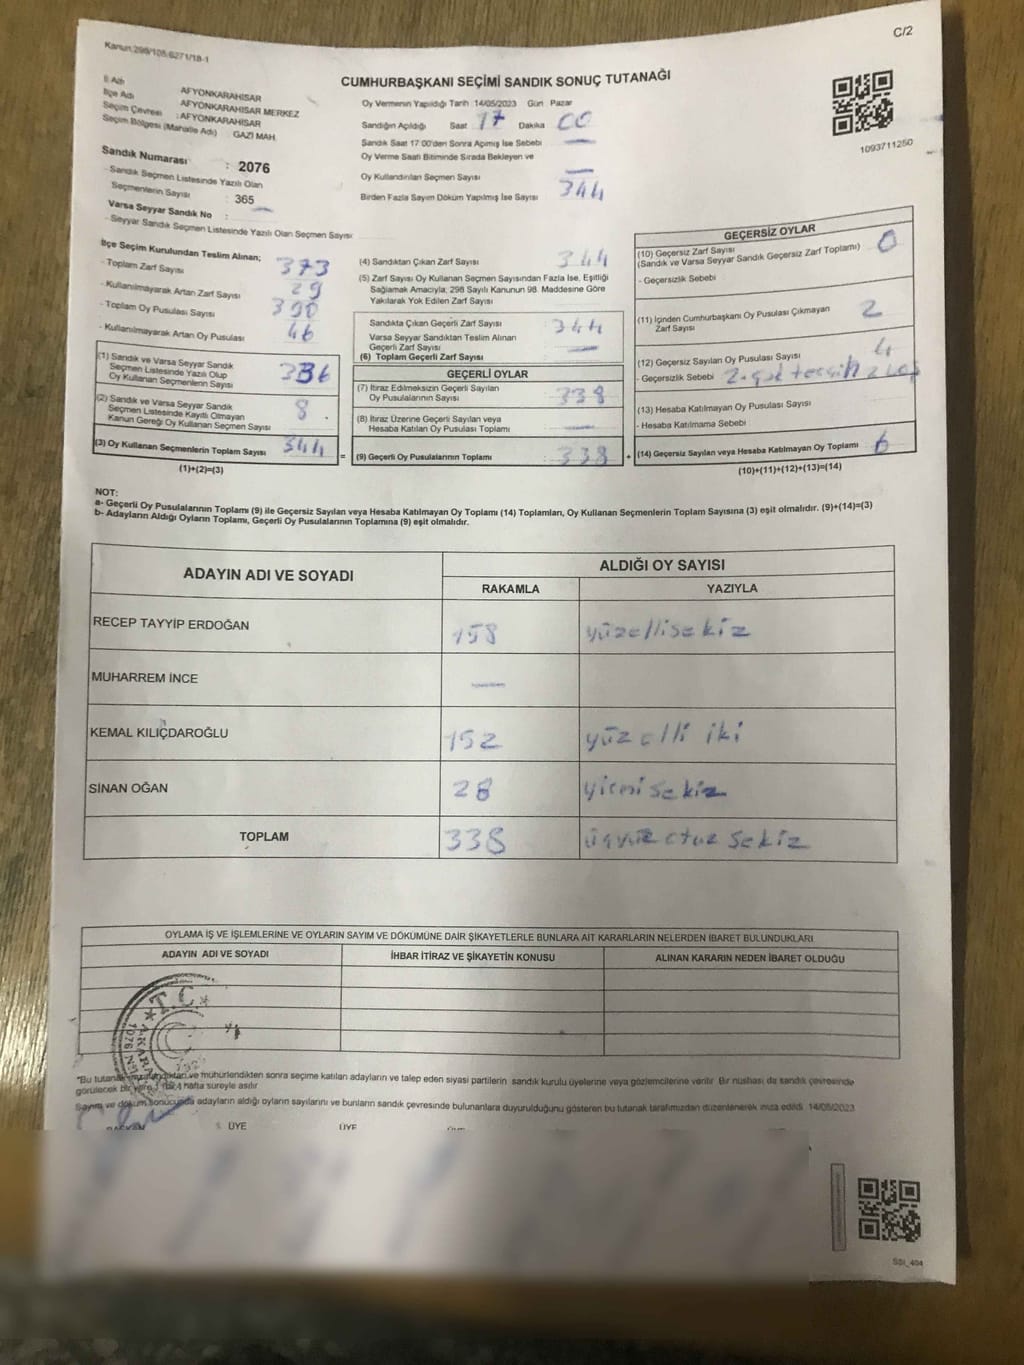 C/2
Kanun:298/105,6271/18-1
CUMHURBAŞKANI SEÇİMİ SANDIK SONUÇ TUTANAĞI
İl Adı AFYONKARAHİSAR
İlçe Adı AFYONKARAHİSAR MERKEZ
Seçim Çevresi : AFYONKARAHİSAR
Seçim Bölgesi (Mahalle Adı) GAZİ MAH.
Oy Vermenin Yapıldığı Tarih 14/05/2023 Gün Pazar
Sandığın Açıldığı Saat 17 Dakika 00
Sandık Saat 17.00'den Sonra Açımış İse Sebebi —
Oy Verme Saati Bitiminde Sırada Bekleyen ve
Oy Kullandırılan Seçmen Sayısı —
Birden Fazla Sayım Döküm Yapılmış İse Sayısı 344
1093711250
Sandık Numarası : 2076
- Sandık Seçmen Listesinde Yazılı Olan
Seçmenlerin Sayısı : 365
Varsa Seyyar Sandık No : —
- Seyyar Sandık Seçmen Listesinde Yazılı Olan Seçmen Sayısı:
İlçe Seçim Kurulundan Teslim Alınan;
- Toplam Zarf Sayısı 373
- Kullanılmayarak Artan Zarf Sayısı 29
- Toplam Oy Pusulası Sayısı 390
- Kullanılmayarak Artan Oy Pusulası 46
(1) Sandık ve Varsa Seyyar Sandık
Seçmen Listesinde Yazılı Olup
Oy Kullanan Seçmenlerin Sayısı 336
(2) Sandık ve Varsa Seyyar Sandık
Seçmen Listesinde Kayıtlı Olmayan
Kanun Gereği Oy Kullanan Seçmen Sayısı 8
(3) Oy Kullanan Seçmenlerin Toplam Sayısı 344
(1)+(2)=(3)
(4) Sandıktan Çıkan Zarf Sayısı : 344
(5) Zarf Sayısı Oy Kullanan Seçmen Sayısından Fazla İse, Eşitliği
Sağlamak Amacıyla; 298 Sayılı Kanunun 98. Maddesine Göre
Yakılarak Yok Edilen Zarf Sayısı
Sandıkta Çıkan Geçerli Zarf Sayısı : 344
Varsa Seyyar Sandıktan Teslim Alınan
Geçerli Zarf Sayısı —
(6) Toplam Geçerli Zarf Sayısı
GEÇERLİ OYLAR
(7) İtiraz Edilmeksizin Geçerli Sayılan
Oy Pusulalarının Sayısı : 338
(8) İtiraz Üzerine Geçerli Sayılan veya
Hesaba Katılan Oy Pusulası Toplamı : —
= (9) Geçerli Oy Pusulalarının Toplamı : 338 +
GEÇERSİZ OYLAR
(10) Geçersiz Zarf Sayısı
(Sandık ve Varsa Seyyar Sandık Geçersiz Zarf Toplamı) : 0
- Geçersizlik Sebebi :
(11) İçinden Cumhurbaşkanı Oy Pusulası Çıkmayan
Zarf Sayısı 2
(12) Geçersiz Sayılan Oy Pusulası Sayısı : 4
- Geçersizlik Sebebi 2.
(13) Hesaba Katılmayan Oy Pusulası Sayısı :
- Hesaba Katılmama Sebebi :
(14) Geçersiz Sayılan veya Hesaba Katılmayan Oy Toplamı : 6
(10)+(11)+(12)+(13)=(14)
NOT:
a- Geçerli Oy Pusulalarının Toplamı (9) ile Geçersiz Sayılan veya Hesaba Katılmayan Oy Toplamı (14) Toplamları, Oy Kullanan Seçmenlerin Toplam Sayısına (3) eşit olmalıdır. (9)+(14)=(3)
b- Adayların Aldığı Oyların Toplamı, Geçerli Oy Pusulalarının Toplamına (9) eşit olmalıdır.
ADAYIN ADI VE SOYADI ALDIĞI OY SAYISI
RAKAMLA YAZIYLA
RECEP TAYYİP ERDOĞAN 158 yüzellisekiz
MUHARREM İNCE —
KEMAL KILIÇDAROĞLU 152 yüzelli iki
SİNAN OĞAN 28 yirmisekiz
TOPLAM 338 üçyüz otuz sekiz
OYLAMA İŞ VE İŞLEMLERİNE VE OYLARIN SAYIM VE DÖKÜMÜNE DAİR ŞİKAYETLERLE BUNLARA AİT KARARLARIN NELERDEN İBARET BULUNDUKLARI
ADAYIN ADI VE SOYADI İHBAR İTİRAZ VE ŞİKAYETİN KONUSU ALINAN KARARIN NEDEN İBARET OLDUĞU
T.C.
*Bu tutanak imzalandıktan ve mühürlendikten sonra seçime katılan adayların ve talep eden siyasi partilerin sandık kurulu üyelerine veya gözlemcilerine verilir. Bir nüshası da sandık çevresinde
görülecek bir yere 1 hafta süreyle asılır.
Sayım ve döküm sonucunda adayların aldığı oyların sayılarını ve bunların sandık çevresinde bulunanlara duyurulduğunu gösteren bu tutanak tarafımızdan düzenlenerek imza edildi. 14/05/2023
BAŞKAN ÜYE ÜYE
SSI_404